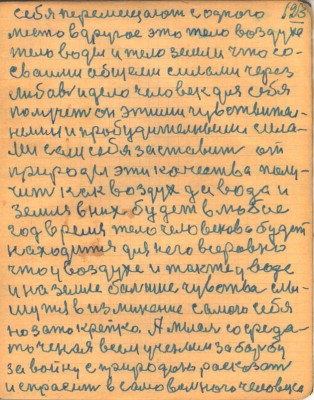 123
себя перемещают с одного
место в другое это тело воздуха
тело воды и тело земли что со
своими общеми силами через
любовь и дело человек для себя
получает он этими чувствител
ными и пробудителными сила
ми сам себя заставит от
природы эти качества полу
чит как воздух да вода и
земля в них будет в любое
год время тело человеково будет
находится для него всеровно
что у воздухе и также у воде
и на земле болшие чувства
в измикение самого себя
но зато крепко. А мысл сосреда
точеная всем ученым за борбу
за войну с природою расказат
и спросит в самово много человека